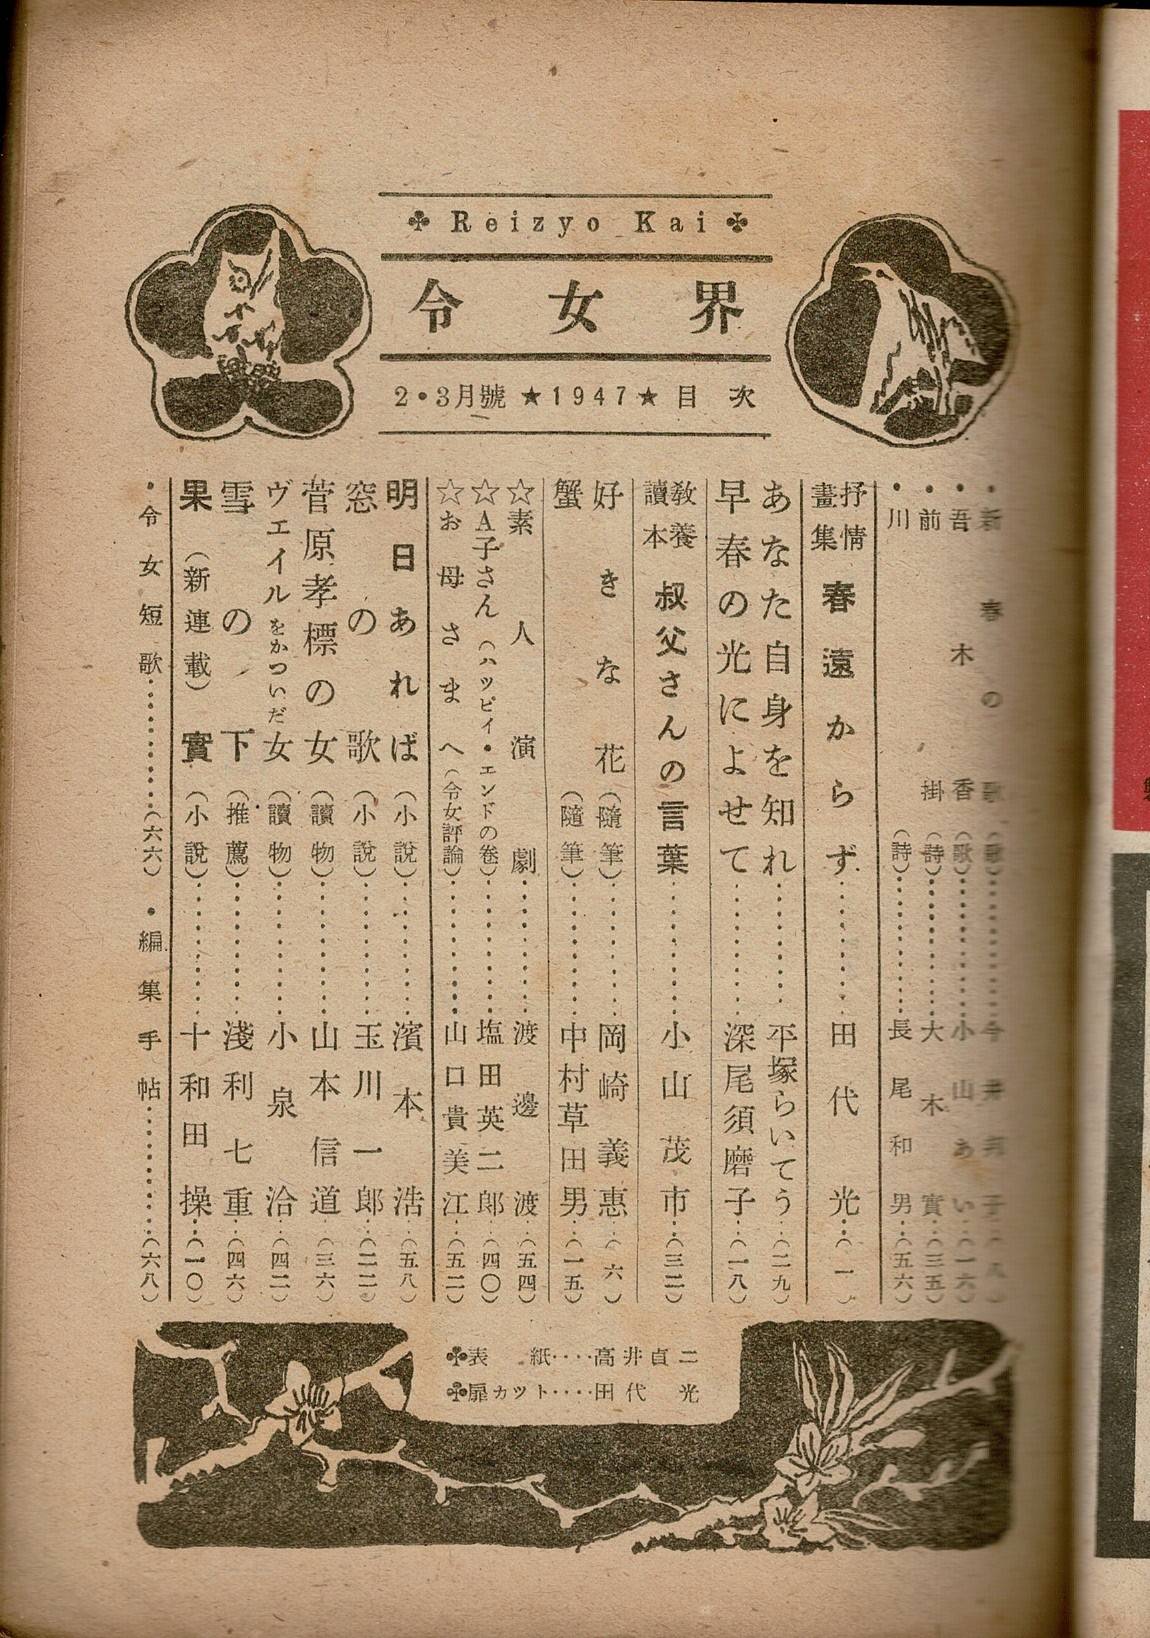 Reizyo Kai
令女界
2・3月號 ★1947★ 目次
・新春の歌(歌)…………今井邦子…(八)
・吾木香(歌)…………小山あい…(一六)
・前掛(詩)…………大木實…(三五)
・川(詩)…………長尾和男…(五六)
抒情畫集 春遠からず…………田代光…(一)
あなた自身を知れ…………平塚らいてう…(二九)
早春の光によせて…………深尾須磨子…(一八)
教養讀本 叔父さんの言葉…………小山茂市…(三二)
好きな花(隨筆)…………岡崎義惠…(六)
蟹(隨筆)…………中村草田男…(一五)
☆素人演劇…………渡邊渡…(五四)
☆A子さん(ハツピイ・エンドの卷)…………塩田英二郎…(四〇)
☆お母さまへ(令女評論)…………山口貴美江…(五二)
明日あれば(小說)…………濱本浩…(五八)
窓の歌(小說)…………玉川一郎…(二二)
菅原孝標の女(讀物)…………山本信道…(三六)
ヴエイルをかついだ女(讀物)…………小泉洽…(四二)
雪の下(推薦)…………淺利七重…(四六)
果實(新連載)(小說)…………十和田操…(一〇)
・令女短歌…………(六六)・編集手帖…………(六八)
表紙‥‥高井貞二
扉カツト‥‥田代光